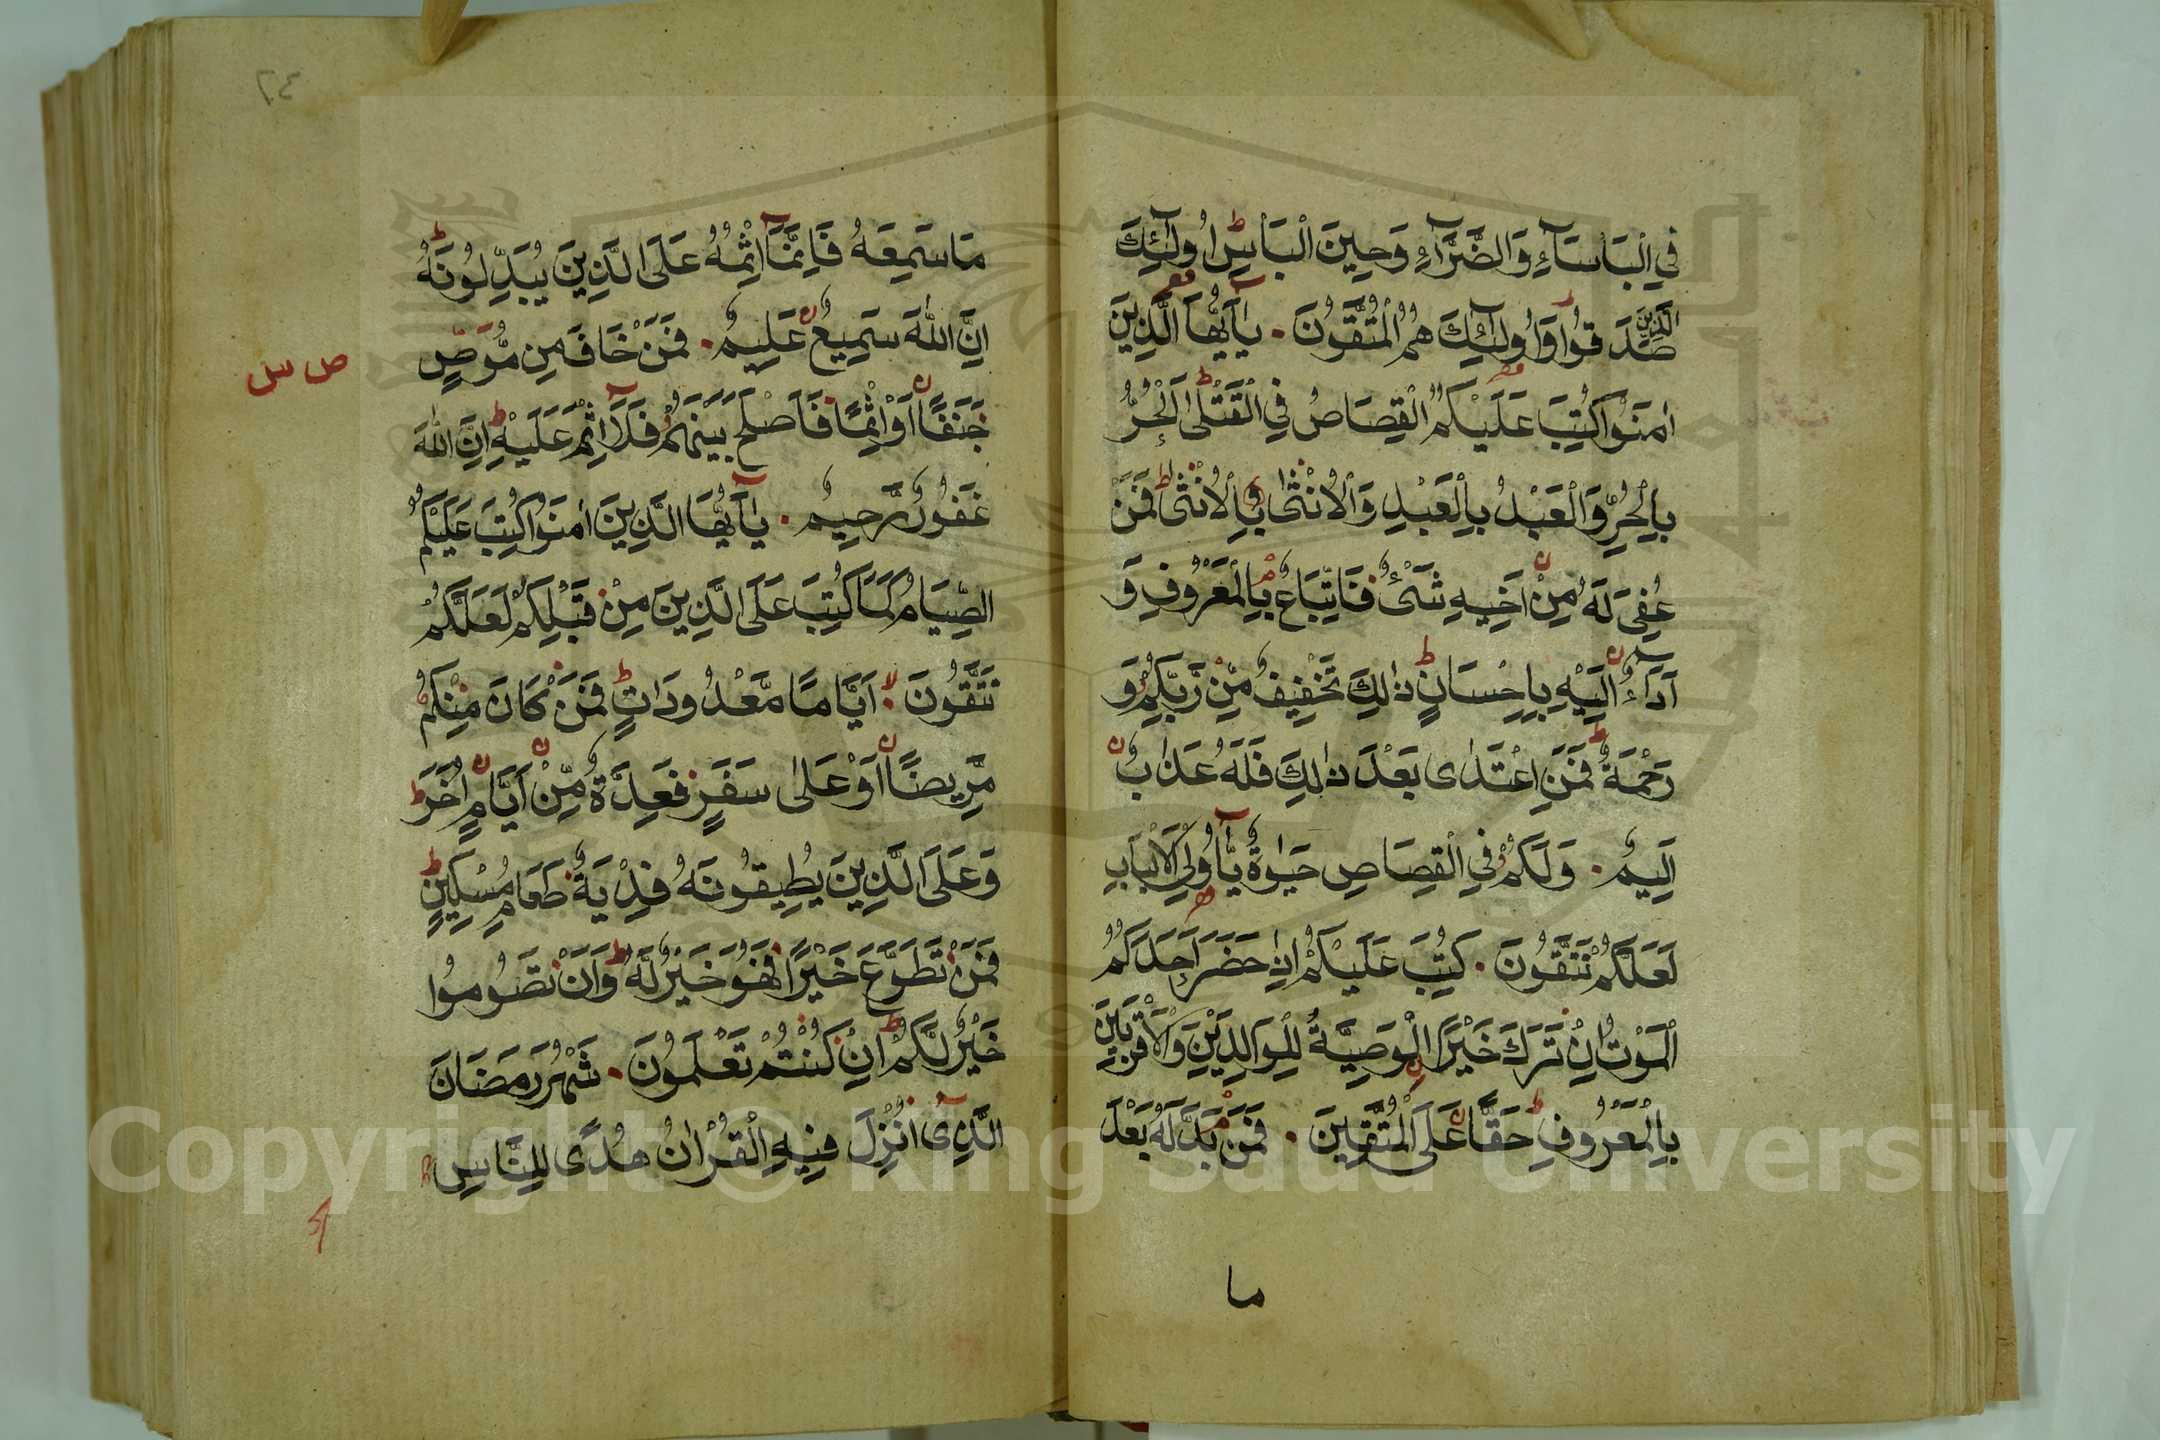 فِي الْبَاْسَآءِ وَالضَّرَّآءِ وَحِينَ الْبَاْسِ اُولٰٓئِكَ
الَّذِينَ صَدَقُوا وَاُولٰٓئِكَ هُمُ الْمُتَّقُونَ . يٰٓاَيُّهَا الَّذِينَ
اٰمَنُوا كُتِبَ عَلَيْكُمُ الْقِصَاصُ فِي الْقَتْلٰى اَلْحُرُّ
بِالْحُرِّ وَالْعَبْدُ بِالْعَبْدِ وَالْاُنْثٰى بِالْاُنْثٰى فَمَنْ
عُفِىَ لَهُ مِنْ اَخِيهِ شَىْءٌ فَاتِّبَاعٌ بِالْمَعْرُوفِ وَ
اَدَآءٌ اِلَيْهِ بِاِحْسَانٍ ذٰلِكَ تَخْفِيفٌ مِّنْ رَّبِّكُمْ وَ
رَحْمَةٌ فَمَنِ اعْتَدٰى بَعْدَ ذٰلِكَ فَلَهُ عَذَابٌ
اَلِيمٌ . وَلَكُمْ فِي الْقِصَاصِ حَيٰوةٌ يٰٓاُولِي الْاَلْبَابِ
لَعَلَّكُمْ تَتَّقُونَ . كُتِبَ عَلَيْكُمْ اِذَا حَضَرَ اَحَدَكُمُ
الْمَوْتُ اِنْ تَرَكَ خَيْرًا الْوَصِيَّةُ لِلْوَالِدَيْنِ وَالْاَقْرَبِينَ
بِالْمَعْرُوفِ حَقًّا عَلَى الْمُتَّقِينَ . فَمَنْ بَدَّلَهُ بَعْدَ
ما
٢٤
مَا سَمِعَهُ فَاِنَّمَٓا اِثْمُهُ عَلَى الَّذِينَ يُبَدِّلُونَهُ
اِنَّ اللّٰهَ سَمِيعٌ عَلِيمٌ . فَمَنْ خَافَ مِنْ مُّوصٍ
جَنَفًا اَوْ اِثْمًا فَاَصْلَحَ بَيْنَهُمْ فَلَٓا اِثْمَ عَلَيْهِ اِنَّ اللّٰهَ
غَفُورٌ رَّحِيمٌ . يٰٓاَيُّهَا الَّذِينَ اٰمَنُوا كُتِبَ عَلَيْكُمُ
الصِّيَامُ كَمَا كُتِبَ عَلَى الَّذِينَ مِنْ قَبْلِكُمْ لَعَلَّكُمْ
تَتَّقُونَ . اَيَّامًا مَّعْدُودَاتٍ فَمَنْ كَانَ مِنْكُمْ
مَّرِيضًا اَوْ عَلٰى سَفَرٍ فَعِدَّةٌ مِّنْ اَيَّامٍ اُخَرَ
وَعَلَى الَّذِينَ يُطِيقُونَهُ فِدْيَةٌ طَعَامُ مِسْكِينٍ
فَمَنْ تَطَوَّعَ خَيْرًا فَهُوَ خَيْرٌ لَّهُ وَاَنْ تَصُومُوا
خَيْرٌ لَّكُمْ اِنْ كُنْتُمْ تَعْلَمُونَ . شَهْرُ رَمَضَانَ
الَّذِٓى اُنْزِلَ فِيهِ الْقُرْاٰنُ هُدًى لِلنَّاسِ
ص س
Copyright © King Saud University